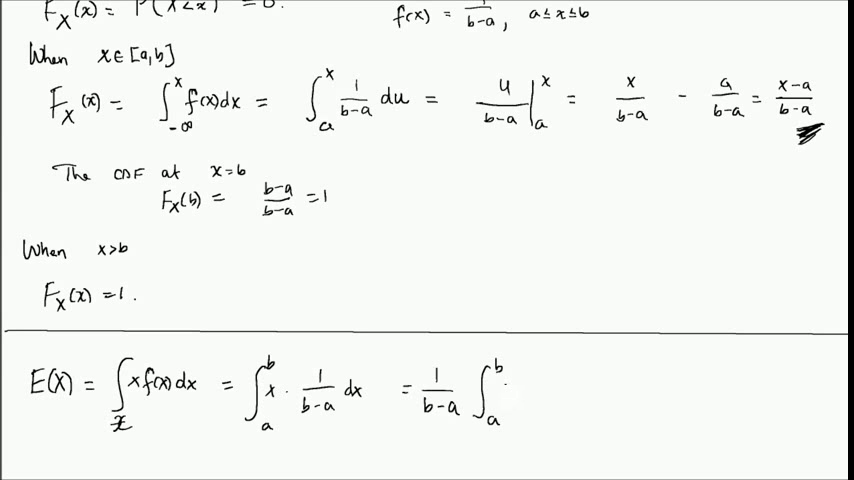 F_X(x) = P(X<x) = 0.
f(x) = 1/(b-a), a≤x≤b
When x∈[a,b]
F_X(x) = ∫_{-∞}^{x} f(x)dx = ∫_a^x 1/(b-a) du = u/(b-a) |_a^x = x/(b-a) - a/(b-a) = (x-a)/(b-a)
The CDF at x=b
F_X(b) = (b-a)/(b-a) = 1
When x>b
F_X(x) = 1.
E(X) = ∫_x x f(x) dx = ∫_a^b x · 1/(b-a) dx = 1/(b-a) ∫_a^b